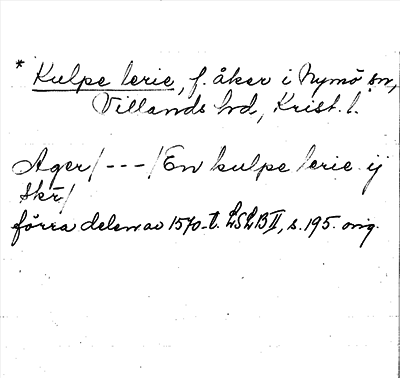 * Kulpe lerie, f. åker i Nymö sn,
Villands hd, Krist. l.
Ager/---/En kulpe lerie ij
Skr/
förra delen av 1570-t. LSLB II, s. 195. orig.